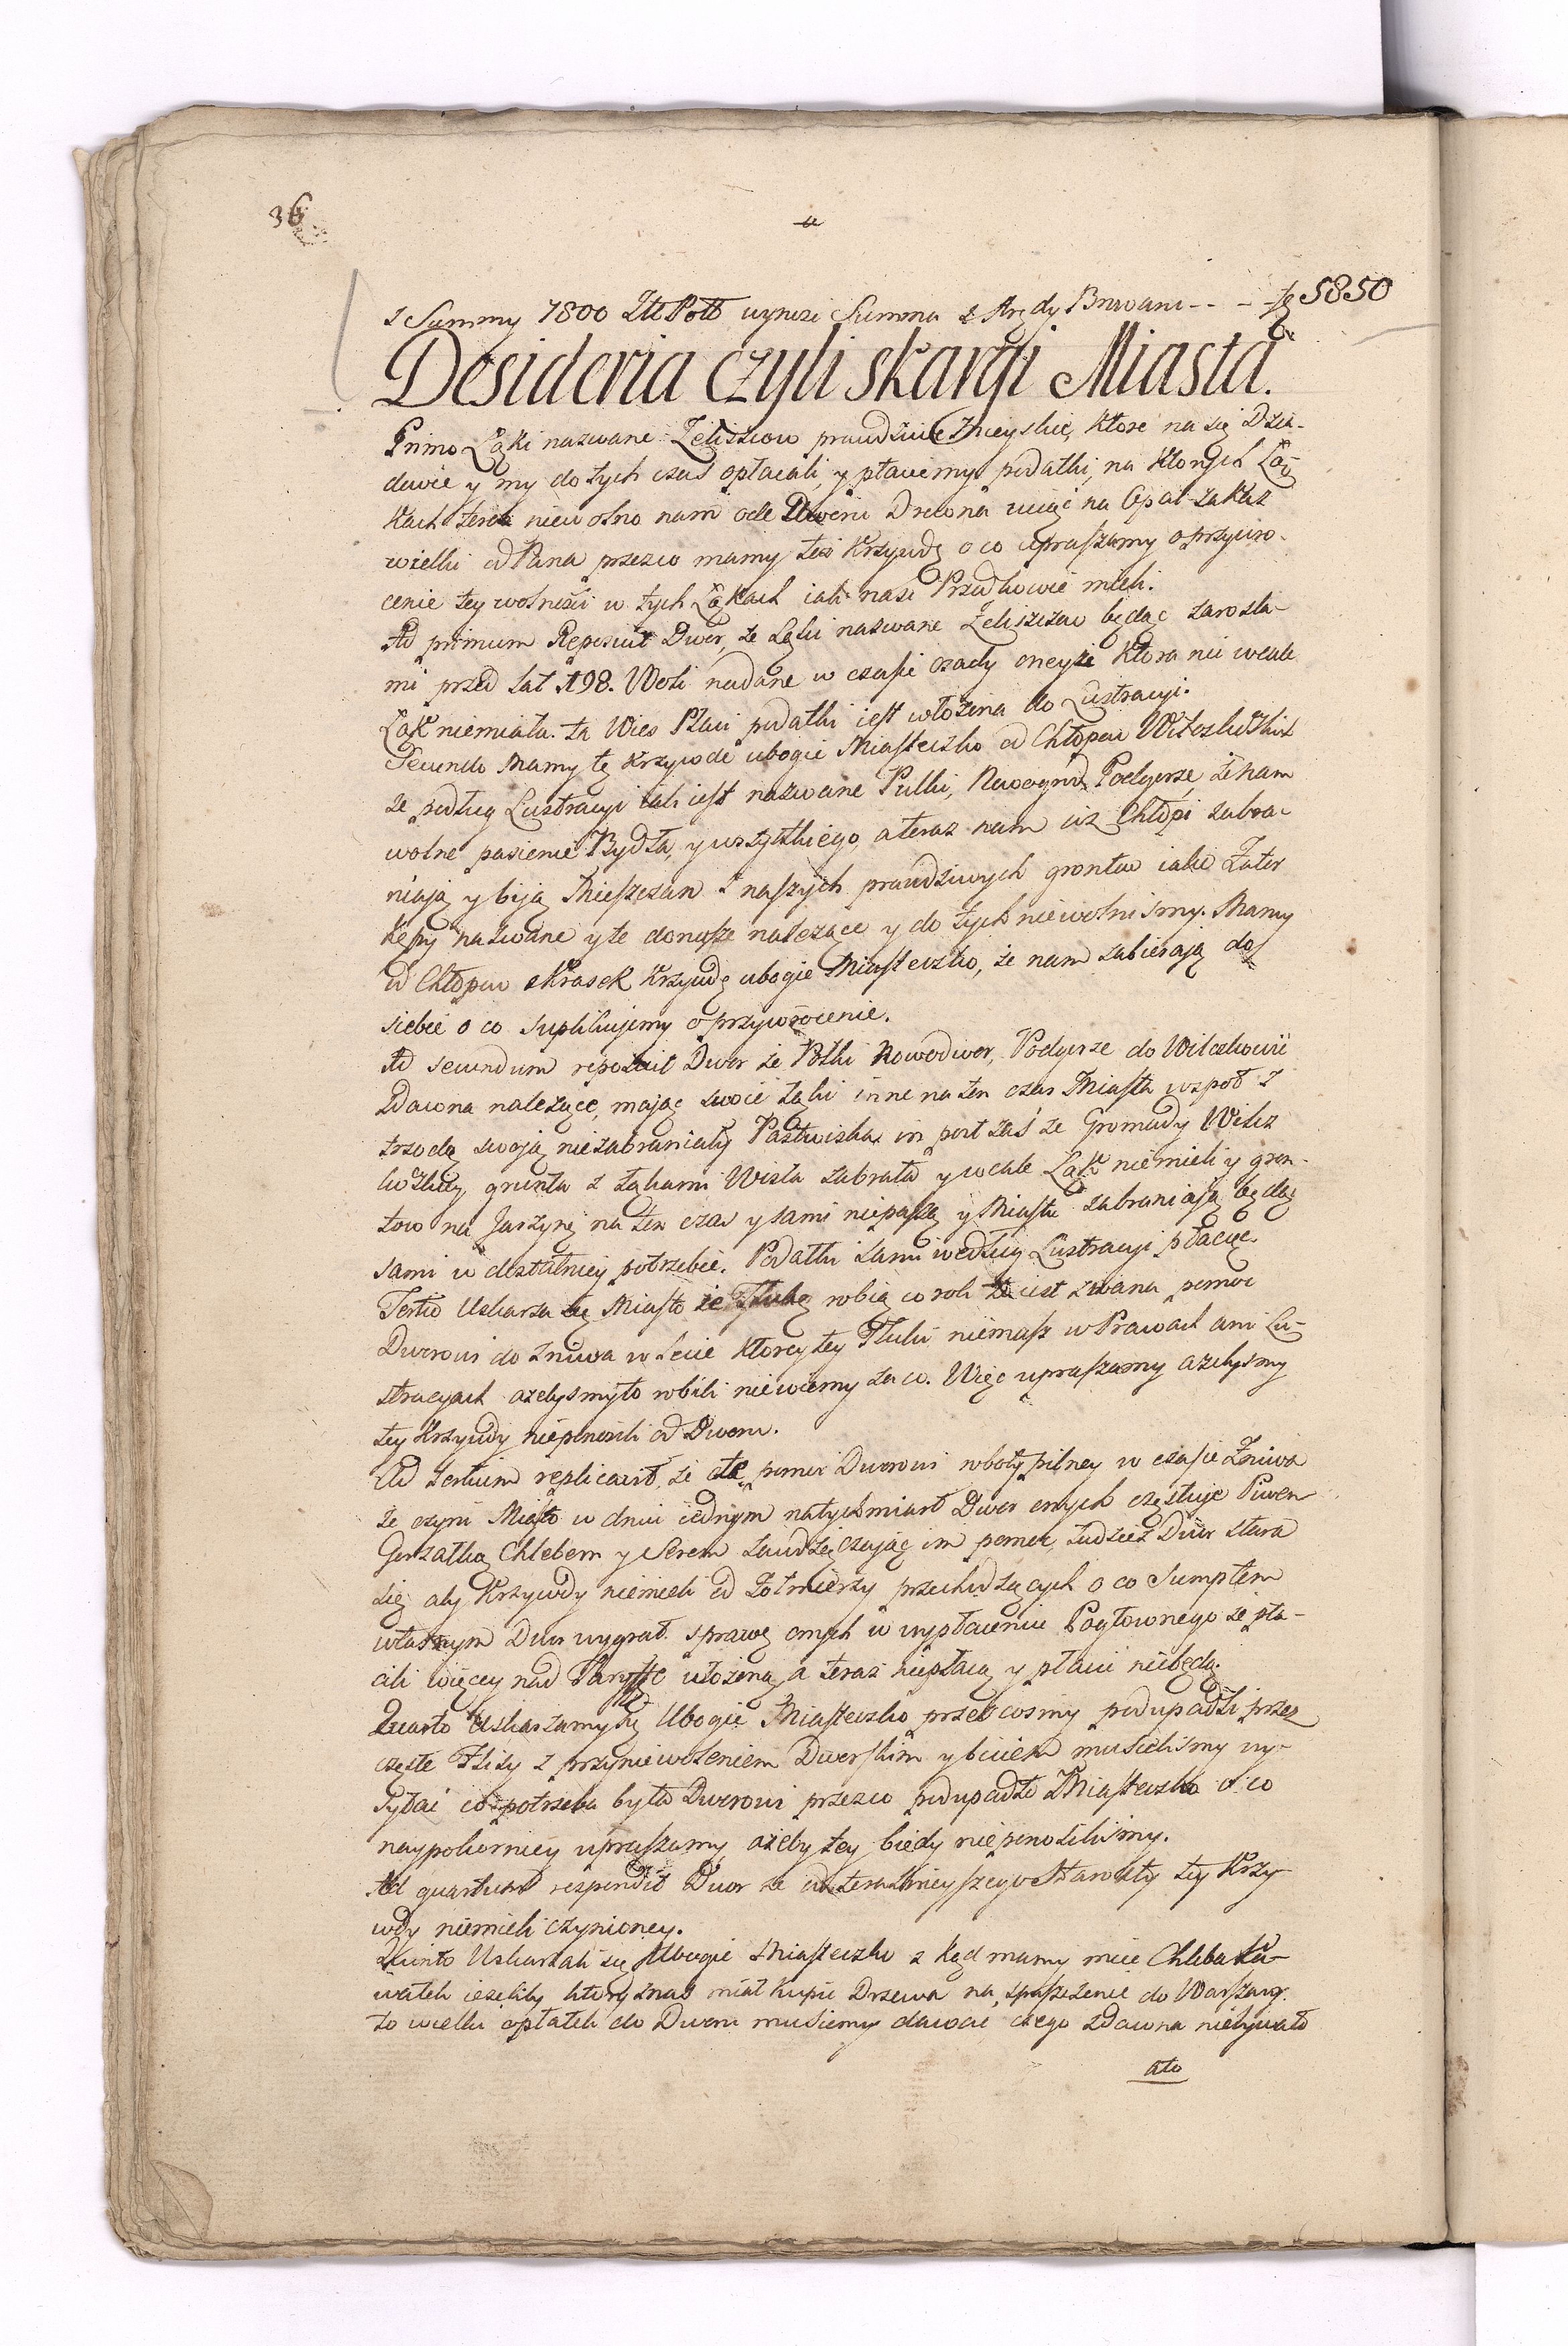 36
z Summy 7800 Złt Pols wynosi Summa z Arędy Browaru - - - fl 5850
Desideria czyli skargi Miasta.
Primo Łąki nazwane Zeliszczow prawdziwe Mieyskie, ktore na się Dzia-
dowie y my do tych czas opłacali, y płaciemy podatki, na ktorych Łą-
kach teraz niewolno nam ode Dworu Drewna uciąć na Opał zakaz
wielki od Pana przezco mamy też Krzywdę o co upraszamy o przywro-
cenie tey wolności w tych Łąkach iak nasi Przodkowie mieli.
Ad primum Reposuit Dwor, że Łęki nazwane Zeliszczow będąc zarosla-
mi przed lat 198. Woli nadane w czasie osady oneyże ktora nie wcale
Łąk niemiała. ta Wies Płaci podatki iest włożona do Lustracyi.
Secundo Mamy tę krzywde ubogie Miasteczko od Chłopow
że podług Lustracyi iak iest nazwane Pulki, Nowogrod, Podgorze, że nam
wolne pasienie Bydła, y wszytkiego, a teraz nam iuż Chłopi zabra-
niaią y biją Mieszczan z naszych prawdziwych grontow iako Zator
Kępy nazwane y te do nasze należące y do tych niewolni smy. Mamy
od Chłopow z Krasek Krzywdę ubogie Miasteczko, że nam zabieraią do
siebie o co suplikujemy o przywrocenie.
Ad secundum reposuit Dwor że Polki Nowodwor, Podgorze do Wilczkowic
zdawna należące, mając swoie łąki inne na ten czas Miasta wspoł z
trzodą swoją niezabraniały Pastwiska, in post zaś że Gromady Wilcz
kowskiey, grunta z łąkami Wisła zabrała y wcale Łąk niemieli y gron-
tow na Jarzynę na ten czas y sami niepaszą y Miastu zabraniają będąc
sami w dostatniey potrzebie. Podatki sami według Lustracyi płacąc.
Tertio Uskarza się Miasto że Tłukę robią co rok to iest zwana pomoc
Dworowi do żniwa w lecie ktorey tey Tłuki niemasz w Prawach ani Lu-
stracyach ażebysmy to robili niewiemy za co. Więc upraszamy ażebysmy
tey Krzywdy nieponosili od Dworu.
Ad tertium replicavit, że tę pomoc Dworowi roboty pilney w czasie Żniwa
że czyni Miasto w dniu iednym natychmiast Dwor onych częstuje Piwem
Gorzałką Chlebem y Serem zawdzięczając im pomoc, tudzież Dwor stara
się aby Krzywdy niemieli od Żołnierzy przechodzących o co Sumptem
własnym Dwor wygrał sprawę onych w wypłaceniu Pogłownego że pła-
cili więcey nad Taryffę ułożoną, a teraz niepłacą y płacić niebędą.
Quarto Uskarzamy się Ubogie Miasteczko przez cosmy podupadli przez
częste Flisy z przyniewoleniem Dworskim y biciem musielismy wy-
syłać co potrzeba było Dworowi przezco podupadło Miasteczko o co
naypokorniey upraszamy ażeby tey biedy nieponosilismy.
Ad quartum respondit Dwor że od teraznieyszego Starosty tey Krzy-
wdy niemieli czynioney.
Quinto Uskarzali się Ubogie Miasteczko z kąd mamy mieć Chleba ka-
wałek ieżeliby ktory z nas miał kupić Drzewa na spaszczenie do Warszawy.
to wielki opłatek do Dworu musiemy dawać czego zdawna niebywało
ato